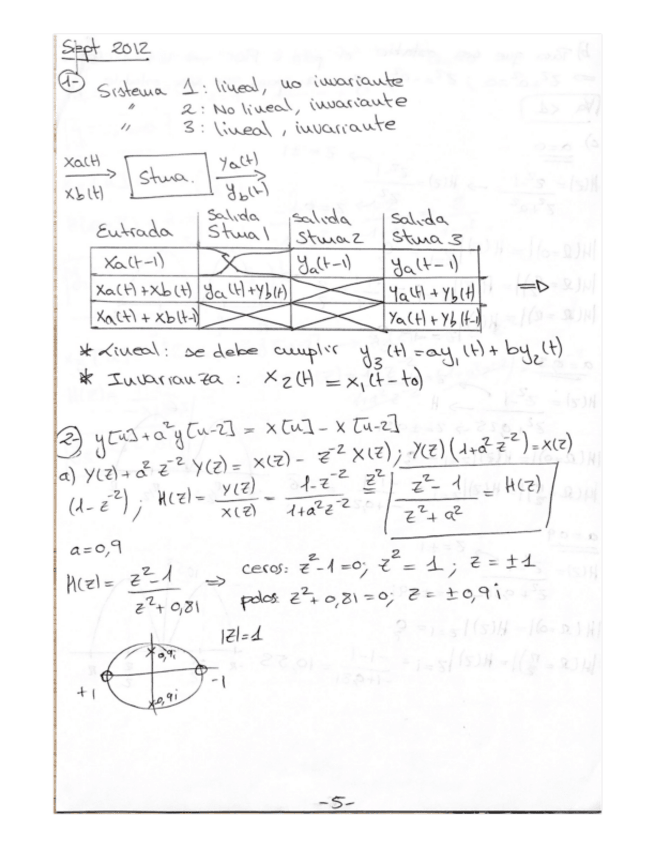 Sept 2012
1- Sistema 1: lineal, no invariante
" 2: No lineal, invariante
" 3: lineal, invariante
xa(t) ya(t)
Stma.
xb(t) yb(t)
Entrada Salida Stma 1 Salida Stma 2 Salida Stma 3
xa(t-1) ya(t-1) ya(t-1)
xa(t)+xb(t) ya(t)+yb(t) ya(t)+yb(t) ⇒
xa(t)+xb(t-1) ya(t)+yb(t-1)
* Lineal: se debe cumplir y₃(t)=ay₁(t)+by₂(t)
* Invarianza: x₂(t) = x₁(t-to)
2-) y[n]+a²y[n-2] = x[n]-x[n-2]
a) Y(z)+a² z⁻² Y(z) = X(z) - z⁻² X(z); Y(z)(1+a² z⁻²)=X(z)
(1-z⁻²); H(z) = Y(z)/X(z) = 1-z⁻²/1+a²z⁻² = z² z²-1/z²+a² = H(z)
a=0,9
H(z)= z²-1/z²+0,81 ⇒ ceros: z²-1=0; z²=1; z=±1
polos: z²+0,81=0; z=±0,9i
|z|=1
x0,9i
+1 -1
x0,9i
-5-